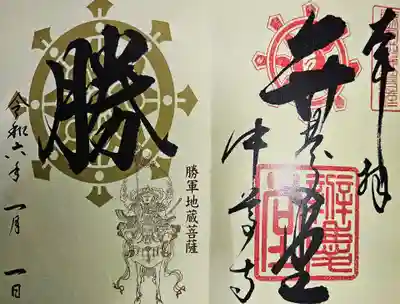 奉拝
弁慶堂
中尊寺
勝
勝軍地蔵菩薩
令和六年一月一日